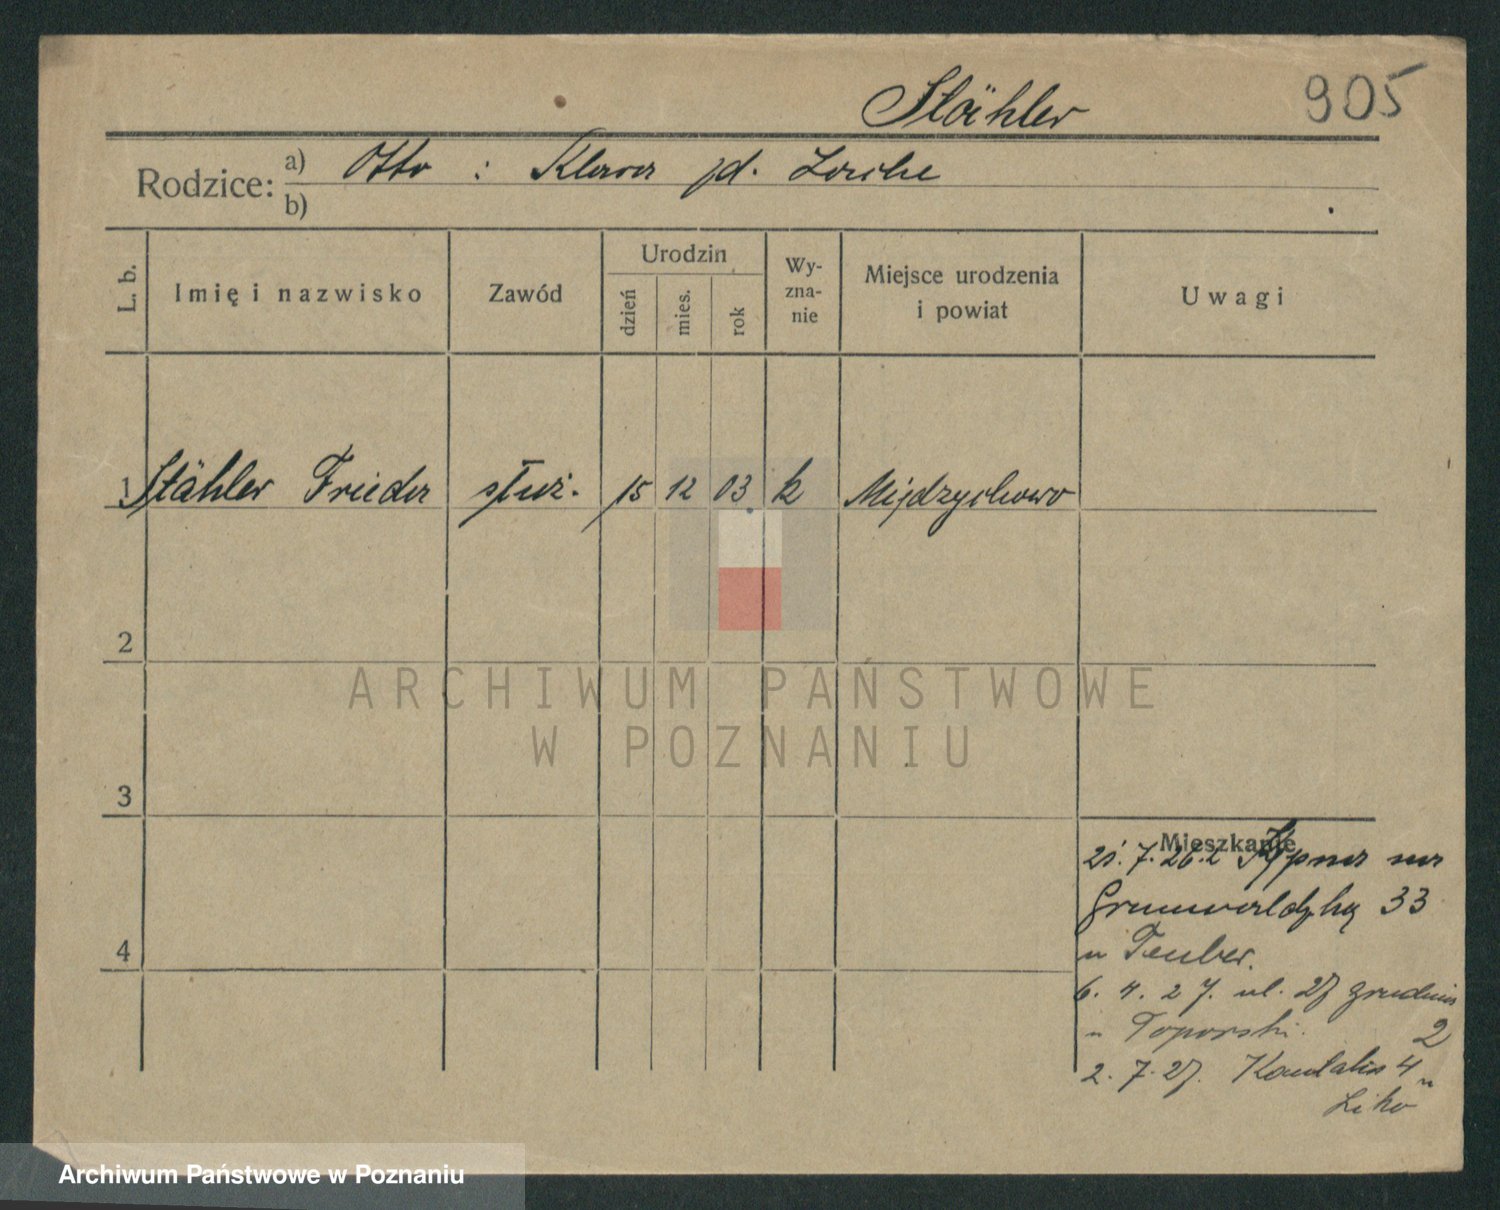 Stähler 905
Rodzice: a) Otto : Klara zd. Lorche
b)
L. b. Imię i nazwisko Zawód Urodzin dzień mies. rok Wy-zna-nie Miejsce urodzenia i powiat Uwagi
1 Stähler Frieda służ. 15 12 03 k Międzychowo
2
ARCHIWUM PAŃSTWOWE
W POZNANIU
3
Mieszkanie
7. 26. z na
Grunwaldzką 33
u Teuber.
6. 4. 27. ul. 27 grudnia
u Toporski. 2
2. 7. 27. Kantaka 4 u
4
Archiwum Państwowe w Poznaniu